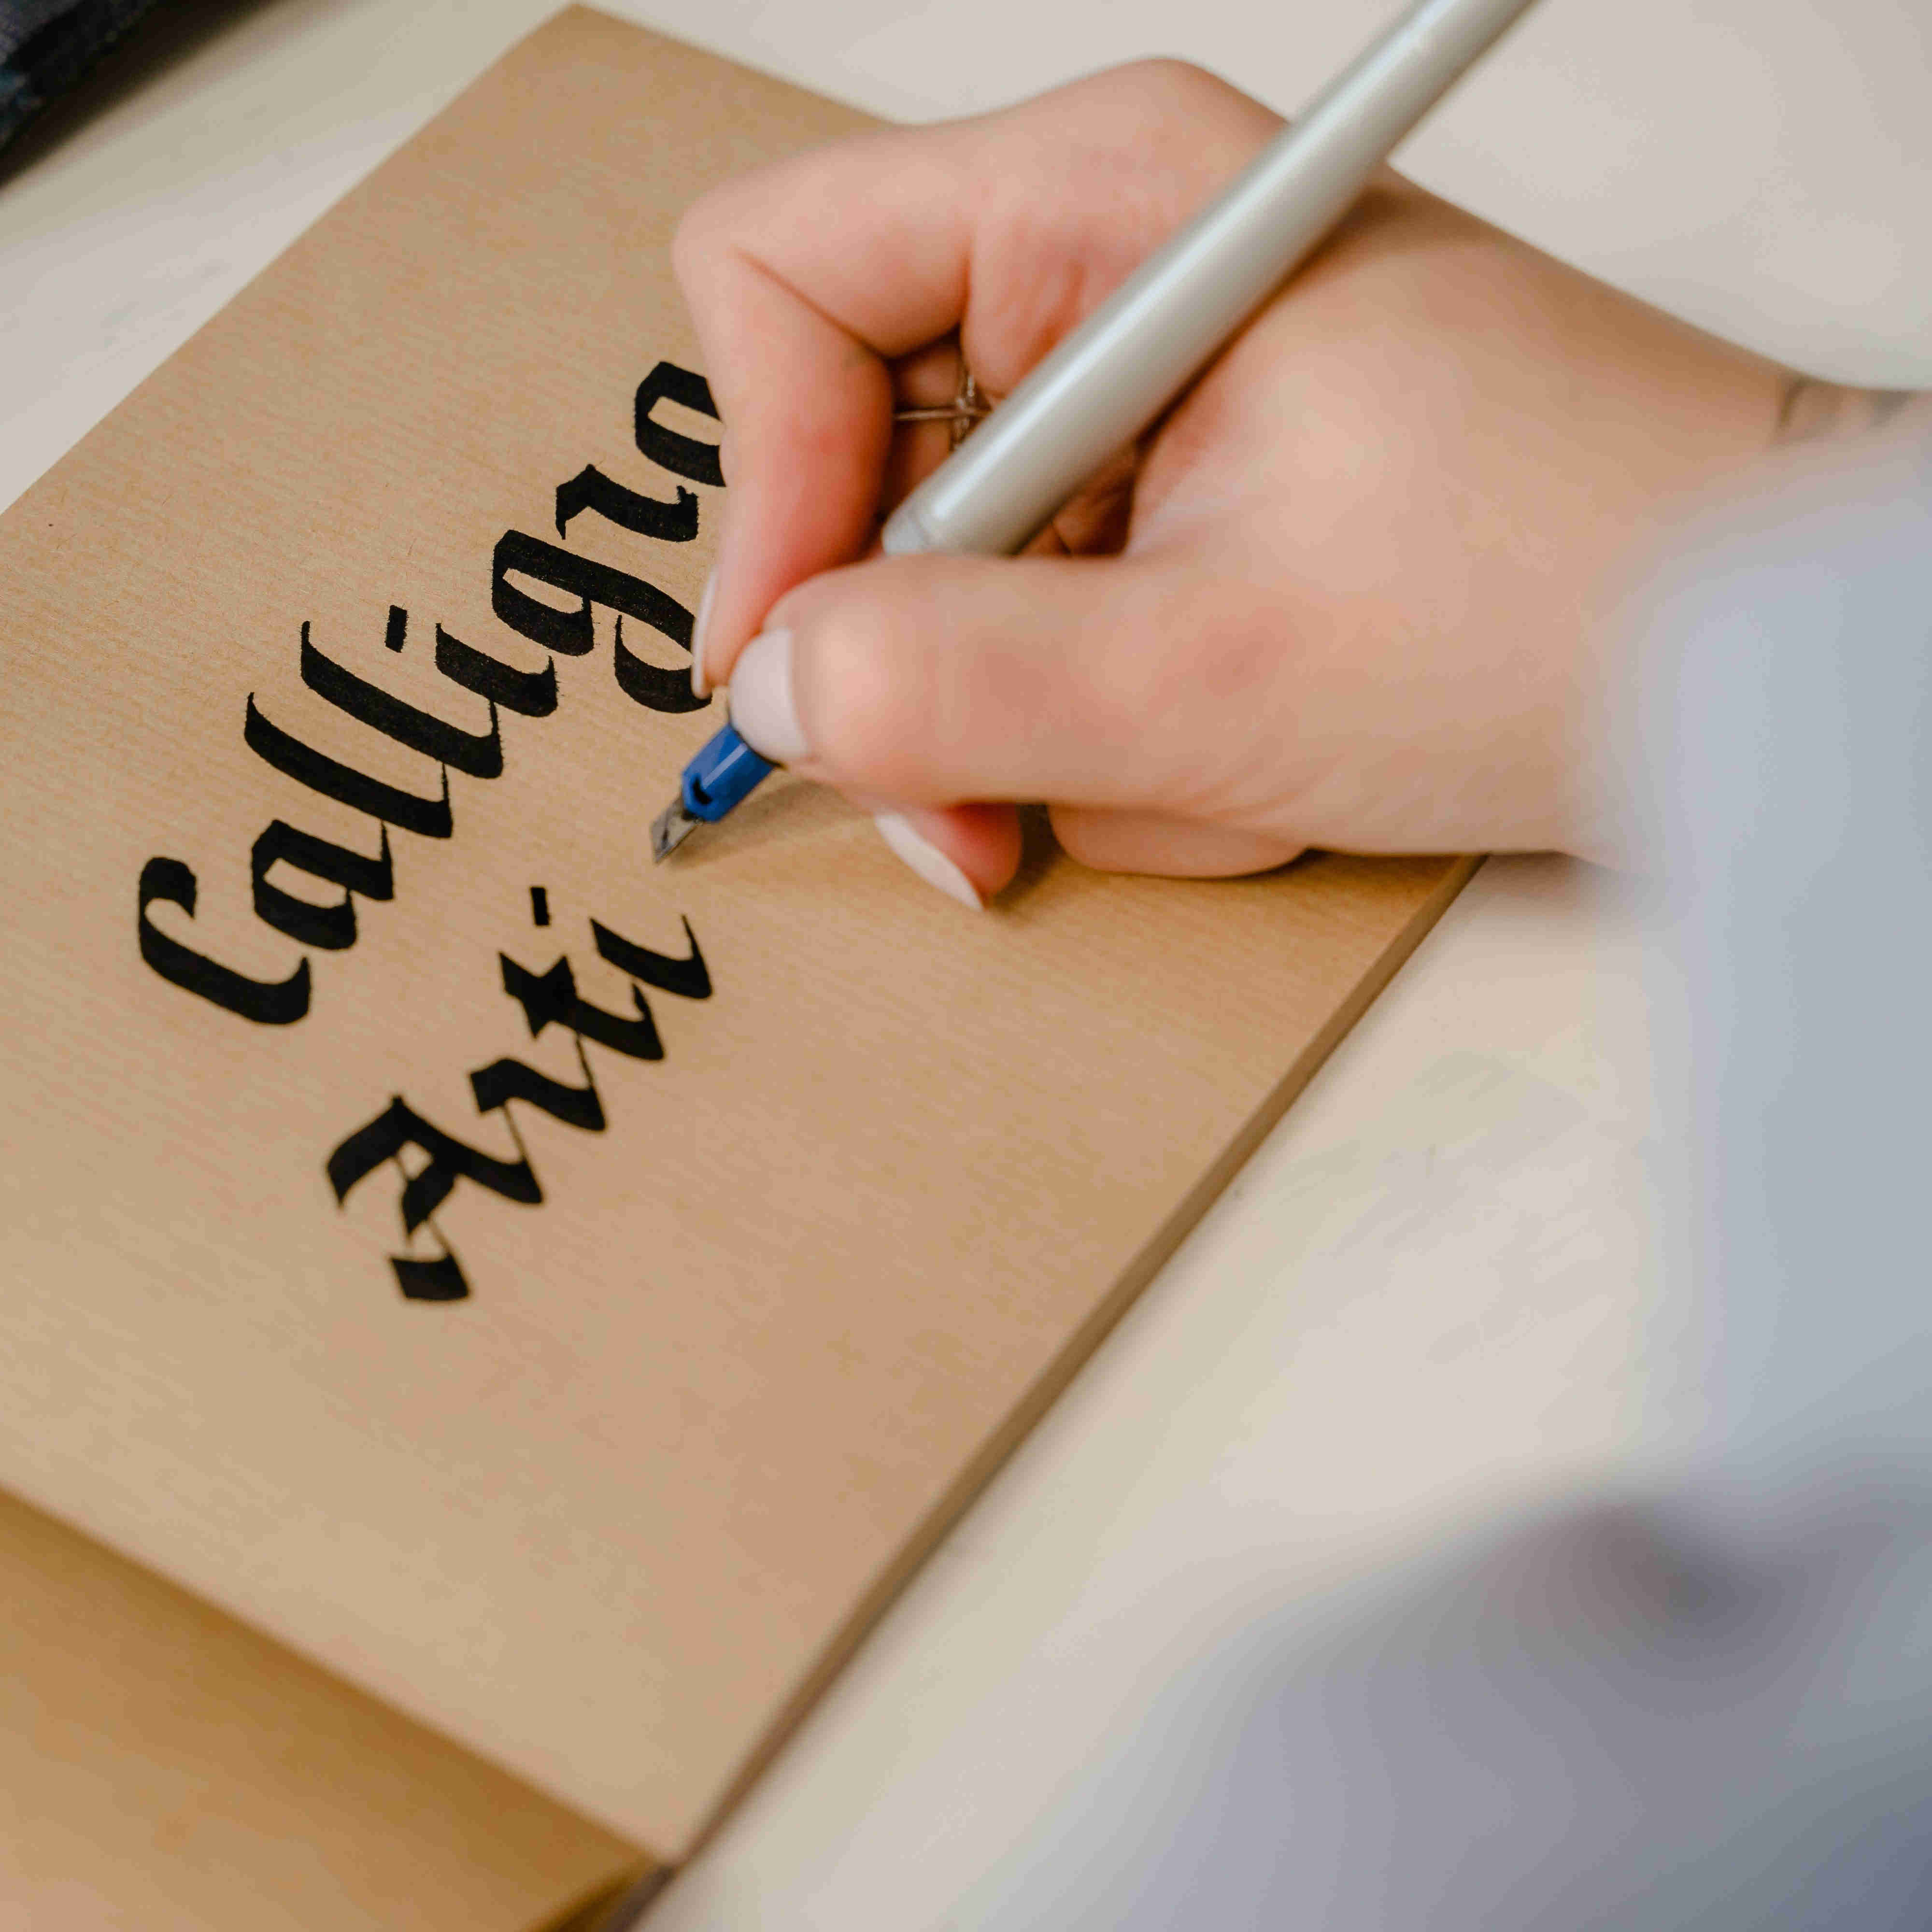 Calligra
Arti